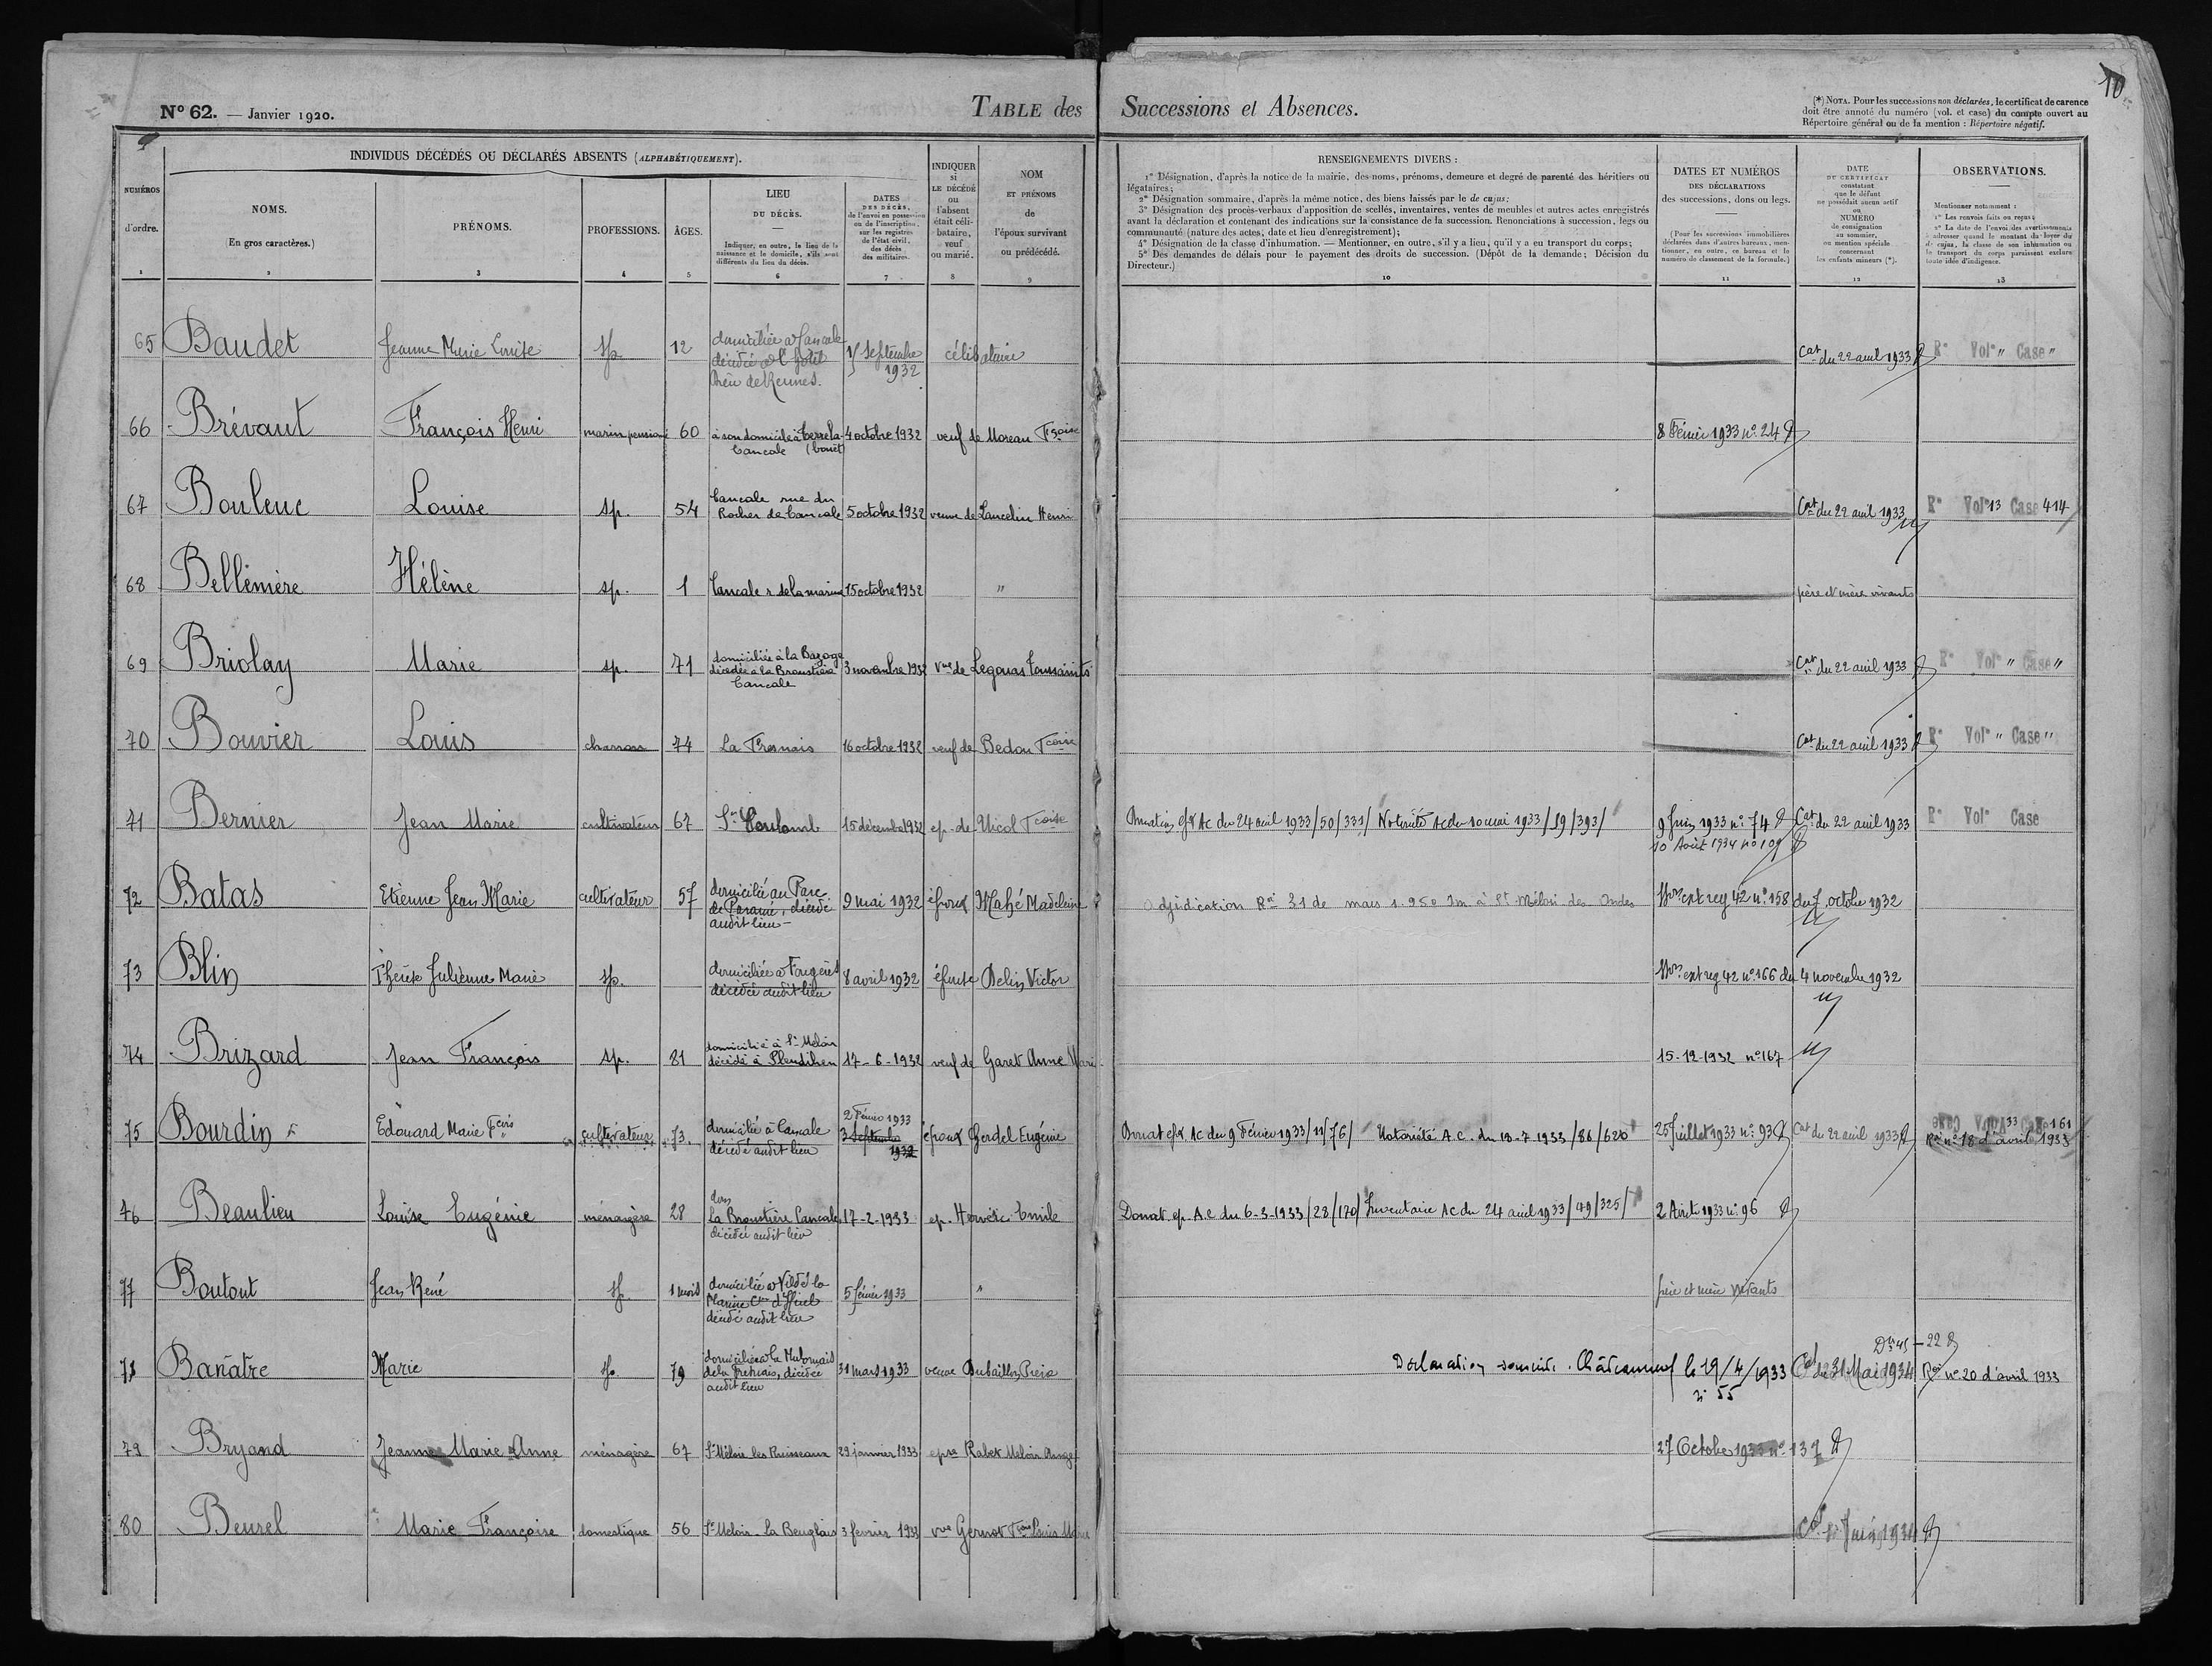 10
N° 62. — Janvier 1920.
TABLE des Successions et Absences.
(*) NOTA. Pour les successions non déclarées, le certificat de carence
doit être annoté du numéro (vol. et case) du compte ouvert au
Répertoire général ou de la mention : Répertoire négatif.
NUMÉROS
d'ordre.
1
INDIVIDUS DÉCÉDÉS OU DÉCLARÉS ABSENTS (ALPHABÉTIQUEMENT).
NOMS.
(En gros caractères.)
2
PRÉNOMS.
3
PROFESSIONS.
4
ÂGES.
5
LIEU
DU DÉCÈS.
Indiquer, en outre, le lieu de la
naissance et le domicile, s'ils sont
différents du lieu du décès.
6
DATES
DES DÉCÈS,
de l'envoi en possession
ou de l'inscription
sur les registres
de l'état civil,
des décès
des militaires.
7
INDIQUER
si
LE DÉCÉDÉ
ou
l'absent
était céli-
bataire,
veuf
ou marié.
8
NOM
ET PRÉNOMS
de
l'époux survivant
ou prédécédé.
9
RENSEIGNEMENTS DIVERS :
1° Désignation, d'après la notice de la mairie, des noms, prénoms, demeure et degré de parenté des héritiers ou
légataires;
2° Désignation sommaire, d'après la même notice, des biens laissés par le de cujus;
3° Désignation des procès-verbaux d'apposition de scellés, inventaires, ventes de meubles et autres actes enregistrés
avant la déclaration et contenant des indications sur la consistance de la succession. Renonciations à succession, legs ou
communauté (nature des actes, date et lieu d'enregistrement);
4° Désignation de la classe d'inhumation. — Mentionner, en outre, s'il y a lieu, qu'il y a eu transport du corps;
5° Des demandes de délais pour le payement des droits de succession. (Dépôt de la demande; Décision du
Directeur.)
10
DATES ET NUMÉROS
DES DÉCLARATIONS
des successions, dons ou legs.
(Pour les successions immobilières
déclarées dans d'autres bureaux, men-
tionner, en outre, ce bureau et le
numéro de classement de la formule.)
11
DATE
DU CERTIFICAT
constatant
que le défunt
ne possédait aucun actif
ou
NUMÉRO
de consignation
au sommier,
ou mention spéciale
concernant
les enfants mineurs (*).
12
OBSERVATIONS.
Mentionner notamment :
1° Les renvois faits ou reçus;
2° La date de l'envoi des avertissements
à adresser quand le montant du loyer du
de cujus, la classe de son inhumation ou
le transport du corps paraissent exclure
toute idée d'indigence.
13
65 Baudet Jeanne Marie Louise sp. 12 domiciliée à Cancale 15 septembre célibataire Cat du 22 avril 1933 R° Vol° " Case "
décédée à l'hôtel 1932
Dieu de Rennes.
66 Brévaut François Henri marin pensioné 60 à son domicile à Terrela- 4 octobre 1932 veuf de Moreau Fçoise 8 Février 1933 n° 24
Cancale (bouet)
67 Bouleuc Louise sp. 54 Cancale rue du 5 octobre 1932 veuve de Lancelin Henri Cat du 22 avril 1933 R° Vol° 13 Case 414
Rocher de Cancale
68 Bellêmère Hélène sp. 1 Cancale r. de la marine 15 octobre 1932 " père et mère vivants
69 Briolay Marie sp. 71 domiciliée à la Bazoge 3 novembre 1932 Vve de Legouas Toussaints Cat du 22 avril 1933 R° Vol° " Case "
décédée à la Broustière
Cancale
70 Bouvier Louis charron 74 La Fresnais 16 octobre 1932 veuf de Bedou Fçoise Cat du 22 avril 1933 R° Vol° " Case "
71 Bernier Jean Marie cultivateur 67 St Coulomb 15 décembre 1932 ep. de Nicol Fçoise Donation epx Ac du 24 avril 1933/50/331/ Notoriété Ac du 10 mai 1933/59/393/ 9 Juin 1933 n° 74 Cat du 22 avril 1933 R° Vol° Case
10 Août 1934 n° 109
72 Batas Etienne Jean Marie cultivateur 57 domicilié au Parc 9 mai 1932 époux Mahé Madeleine Adjudication Roi 31 de mars 1.950 Im à St Méloir des Ondes ext reg 42 n° 158 du 7 octobre 1932
de Paramé, décédé
audit lieu
73 Blin Thérèse Julienne Marie sp. domiciliée à Fougères 8 avril 1932 épouse Belin Victor ext reg 42 n° 166 du 4 novembre 1932
décédée audit lieu
74 Brizard Jean François sp. 81 domicilié à St Méloir 17-6-1932 veuf de Garet Anne Marie 15-12-1932 n° 167
décédé à Pleudihen
75 Bourdin Edouard Marie Fçois cultivateur 73. domicilié à Cancale 2 Février 1933 époux Gerdel Eugénie Donat epx Ac du 9 Février 1933/11/76/ Notoriété A.C. du 13-7-1933/86/620 25 Juillet 1933 n° 93 Cat du 22 avril 1933 R° Vol° 33 Case 161
décédé audit lieu 3 Septembre 1932 Roi n° 18 d'avril 1933
76 Beaulieu Louise Eugénie ménagère 28 dom 17-2-1933 ep. Hervéic Emile Donat. ep. A.C du 6-3-1933/28/170/ Inventaire Ac du 24 avril 1933/49/325/ 2 Août 1933 n° 96
La Broustière Cancale
décédée audit lieu
77 Boutout Jean René sp. 1 mois domicilié à Vildé la 5 février 1933 " père et mère vivants
Marine Cne d'Hirel
décédé audit lieu
78 Banâtre Marie sp. 79 domiciliée à la 31 mars 1933 veuve Dubaillon Déclaration souscrite. Châteauneuf le 19/4/1933 Cat du 31 Mai 1934 Roi n° 20 d'avril 1933
de la Fresnais, décédée n° 55
audit lieu
79 Bryand Jeanne Marie Anne ménagère 67 St Méloir les Ruisseaux 29 janvier 1933 epse Rabet Meloir Ange 27 Octobre 1933 n° 137
80 Beurel Marie Françoise domestique 56 St Meloir-La Beuglais 3 fevrier 1933 vve Gernot Fçois Louis Marie Cat Juin 1934